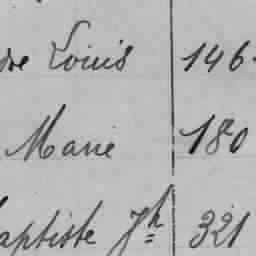 dre Louis 146
Marie 180
aptiste Jh 321